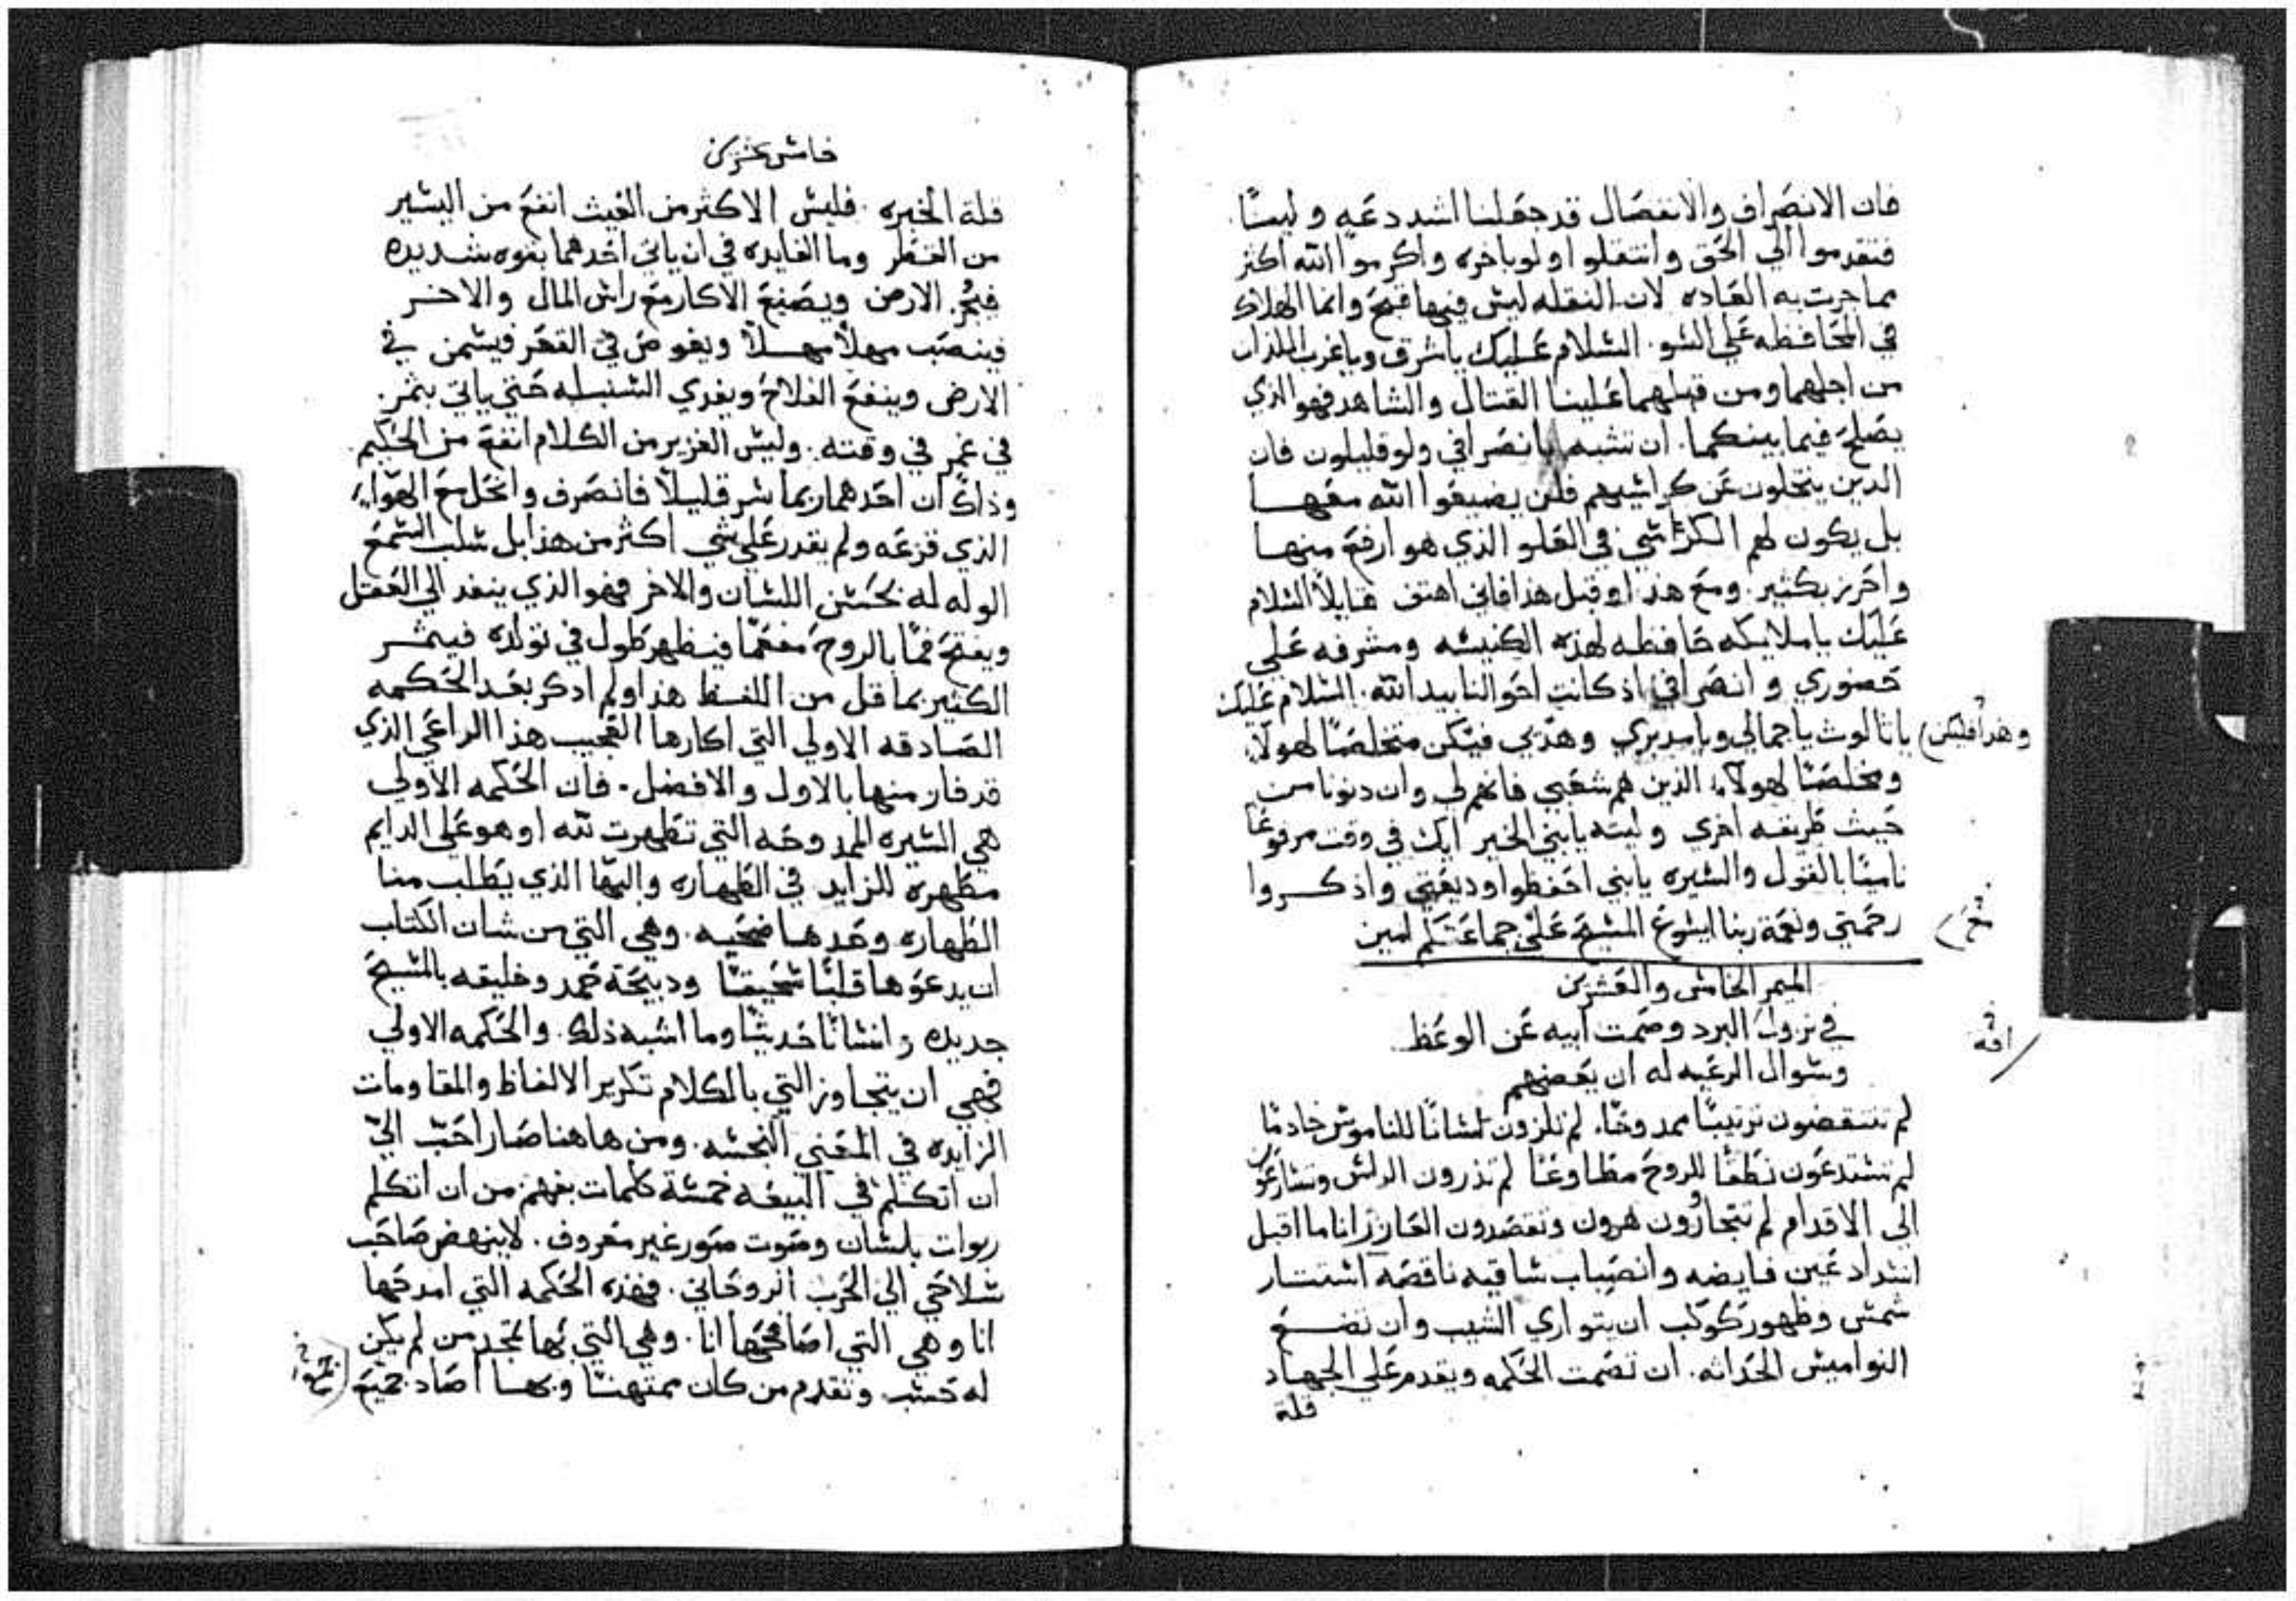 فان الانصراف والانفصال قد جعلنا اشد دعه ولينًا.
فتقدموا الي الحق وانتقلوا ولو باخره واكرموا الله اكثر
مما جرت به العاده لان النقله ليس فيها قبح وانما الهلاك
في المحافظه علي السو. السلام عليك يا شرق ويا غرب اللذان
من اجلهما ومن قبلهما علينا القتال والشاهد فهو الذي
يصلح فيما بينكما. ان تشبه بانصرافي ولو قليلون فان
الدين يتخلون عن كراسيهم فلن يضيعوا الله معها
بل يكون لهم الكراسي في العلو الذي هو ارفع منها
واحرز بكثير. ومع هدا وقبل هدا فاني اهتف قايلا السلام
عليك يا ملايكه حافظه لهذه الكنيسه ومشرفه علي
حضوري وانصرافي اذ كانت احوالنا بيد الله. السلام عليك
يا ثالوث يا جمالي ويا مدبري وهدي فيكن متخلصًا لهولاء
وهدا فليكن
ومخلصًا لهولاء الذين هم شعبي فانهم لي وان دنونا من
حيث طريقه اخري وليته يابني الخير ايك في وقت مرفوعًا
ناميًا بالقول والسيره يابني احفظوا وديعتي واذكروا
رحمتي ونعمة ربنا ايسوع المسيح علي جماعتكم امين
الميمر الخامس والعشرين
في نزول البرد وصمت ابيه عن الوعظ
وسوال الرغبه له ان يعضهم
لم تنتقضون ترتيبًا ممدوحًا. لم تلزون لسانًا للناموس خادمًا
لم تستدعون نطقًا للروح مطاوعًا لم تذرون الراس وتسارعون
الي الاقدام لم تتجاوزون هرون وتقصدون العازر انا ما اقبل
انسداد عين فايضه وانصباب ساقيه ناقصه استتار
شمس وظهور كوكب ان يتواري الشيب وان تضع
النواميس الحداثه. ان تصمت الحكمه ويقدم علي الجهاد
قلة
خامس عشرين
قلة الخبره. فليس الاكثر من الغيث انفع من اليسير
من القطر وما الفايده في ان ياتي احدهما بقوه شديده
فيجر الارض ويصنع الاكار مع راس المال والاخر
فينصب مهلًا مهلًا ويغوص في القعر فيسمن في
الارض وينفع الفلاح ويغدي السنبله حتي ياتي بثمر
في وقته. وليس الغزير من الكلام انفع من الحكيم
وذاك ان احدهما ربما سر قليلًا فانصرف وانحل مع الهواء
الذي قرعه ولم يقدر علي شي اكثر من هذا بل سلب السمع
الوله له بحسن اللسان والاخر فهو الذي ينفد الي العقل
ويفتح فمًا بالروح مفعمًا فيظهر طول في تولده فيثمر
الكثير بما قل من اللفظ هذا ولم ادكر بعد الحكمه
الصادقه الاولي التي اكارها العجيب هذا الراعي الذي
قد فاز منها بالاول والافضل. فان الحكمه الاولي
هي السيره الممدوحه التي تطهرت لله او هو علي الدايم
مطهرة للزايد في الطهاره والبها الذي يطلب منا
الطهاره وحدها ضحيه. وهي التي من شان الكتاب
ان يدعوها قلبًا سحيقًا ودبيحة حمد وخليقه بالمسيح
جديده وانسانًا حديثًا وما اشبه ذلك. والحكمه الاولي
فهي ان يتجاوز التي بالكلام تكرير الالفاظ والمقاومات
الزايده في المعني النجسه. ومن هاهنا صار احب الي
ان اتكلم في البيعه خمسة كلمات بفهم من ان اتكلم
ربوات بلسان وصوت صور غير معروف. لا ينهض صاحب
سلاحي الي الحرب الروحاني. فهذه الحكمه التي امدحها
انا وهي التي اصافحها انا. وهي التي بها تمجد من لم يكن
له حسب وتقدم من كان ممتهنًا وبها اصاد جميع